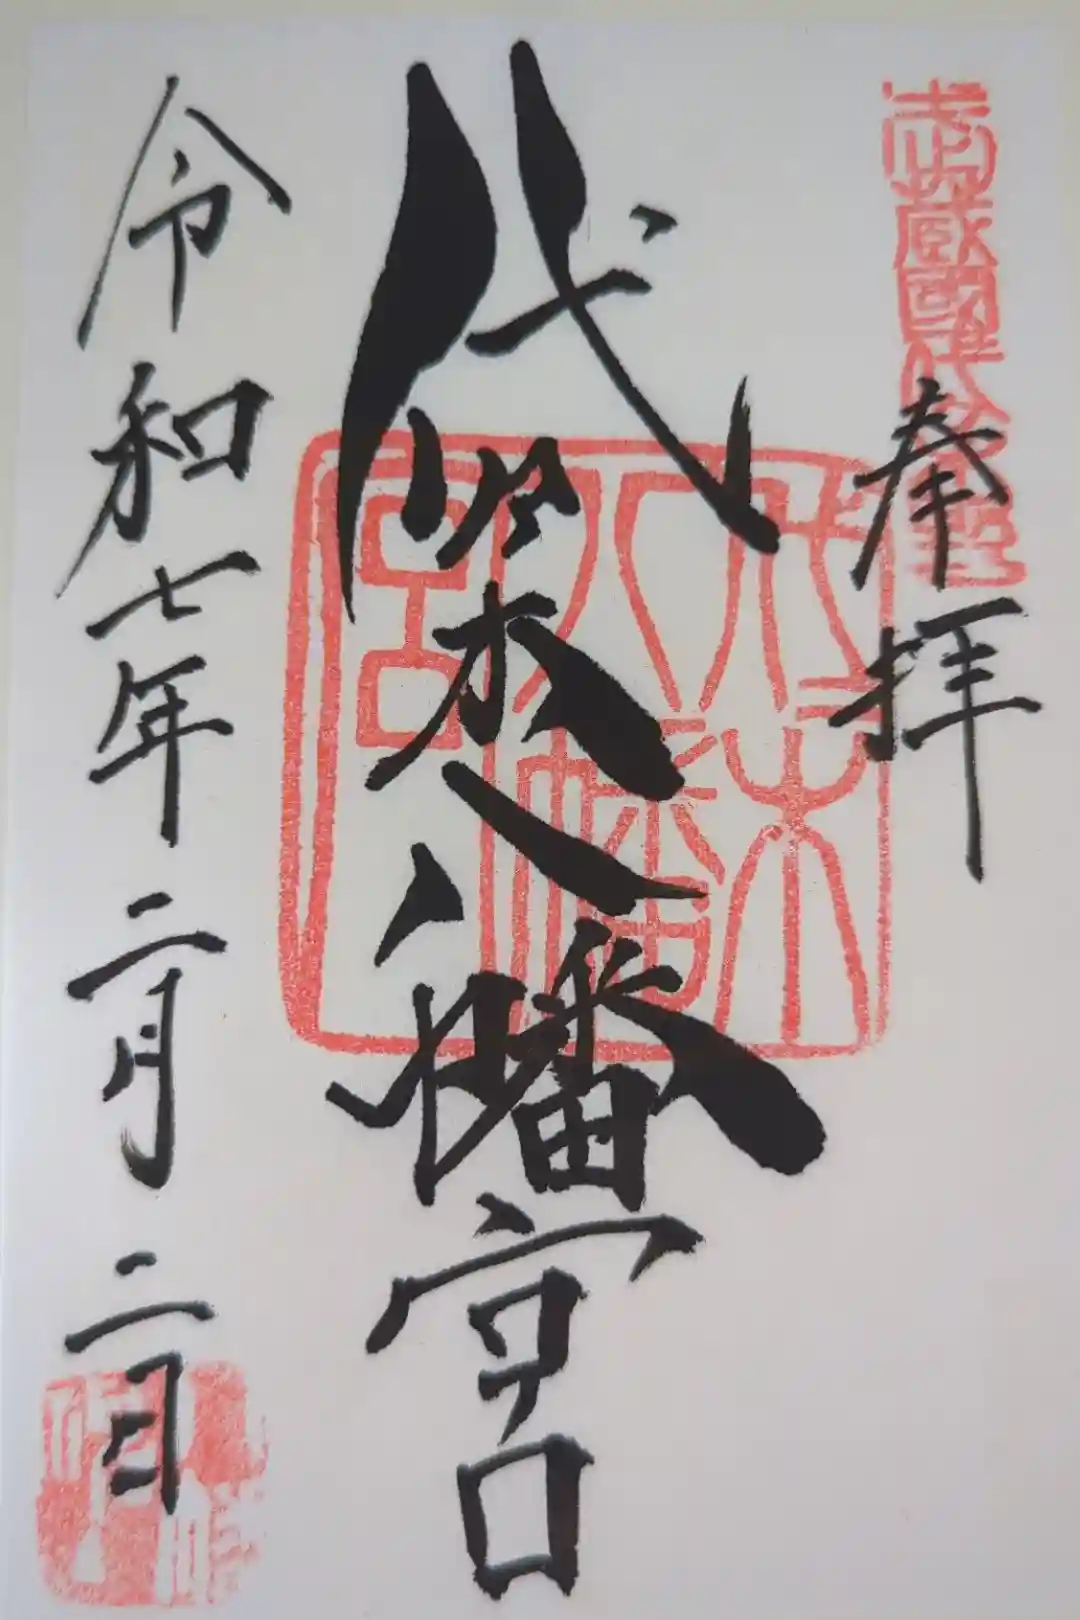 奉拝
代々木八幡宮
令和七年二月二日
代々木八幡宮